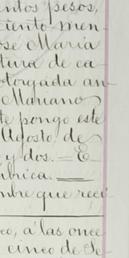 ntos pesos,
ciento men-
ose Maria
tura de ca-
otorgada an-
Mariano
te pongo este
Agosto de
y dos. — E
ubrica. —
mbre que reci-
co, a las once
cinco de Se-